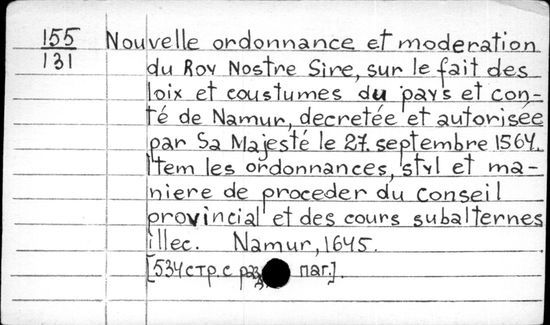 155 Nouvelle ordonnance et moderation
131 du Roy Nostre Sire, sur le fait des
loix et coustumes du pays et con-
té de Namur, decretée et autorisée
par Sa Majesté le 27. septembre 1564.
Item les ordonnances, styl et ma-
niere de proceder du conseil
provincial et des cours subalternes
illec. Namur, 1645.
[534 стр. с разд. паг.].